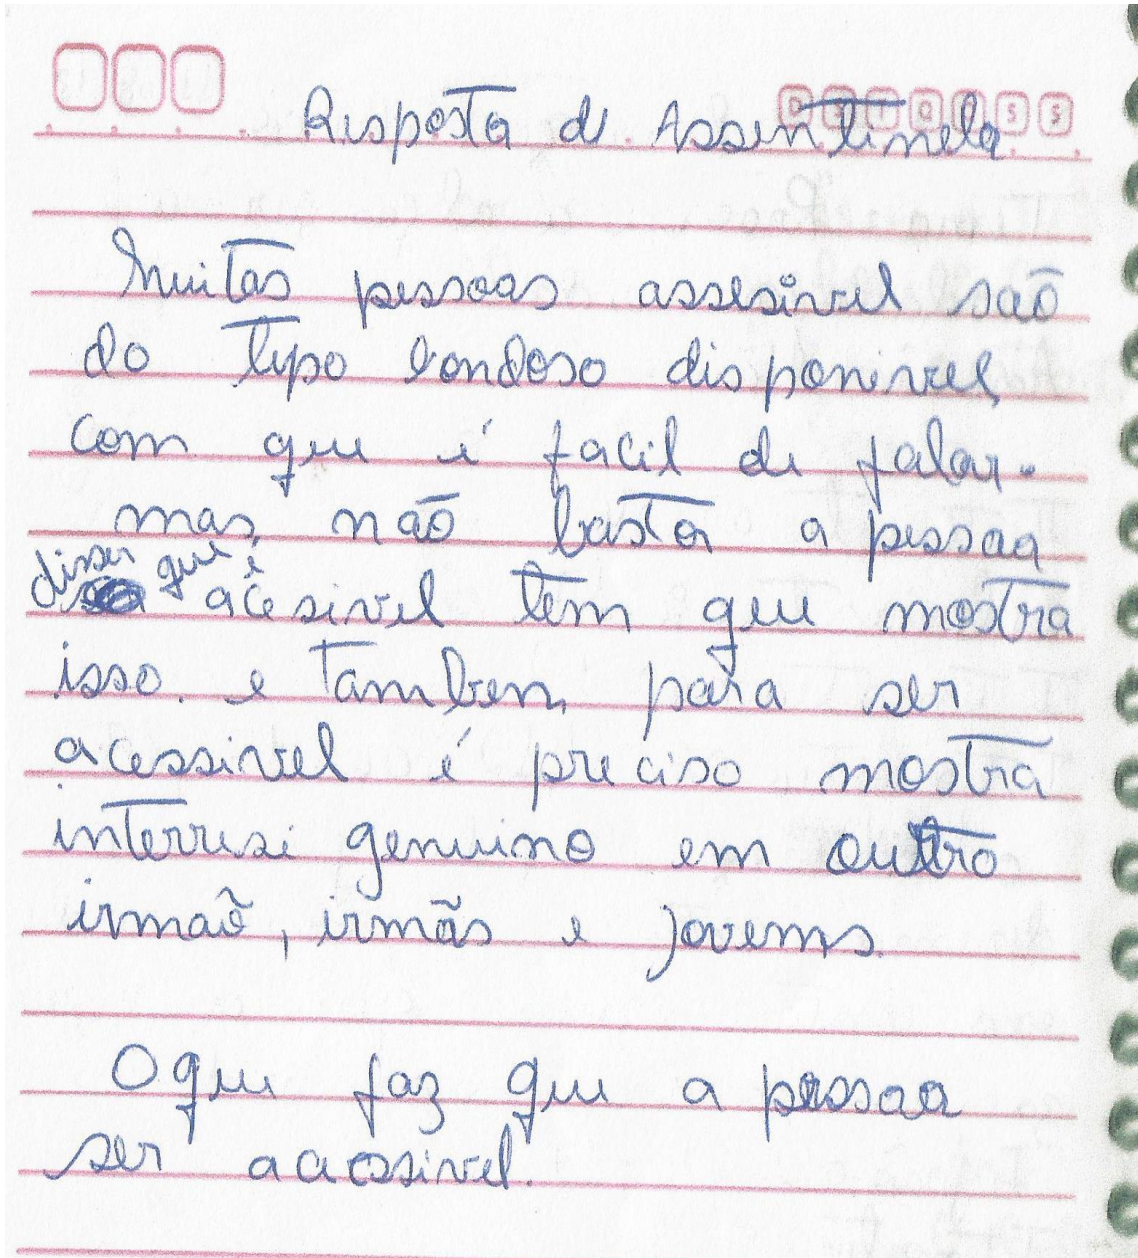 D S T Q Q S S
Resposta de Assentinela
Muitas pessoas assesivel são
do tipo bondoso disponivel,
com que é facil de falar.
mas, não basta a pessaa
disser que é
acesivel tem que mostra
isso. e tambem, para ser
acessivel é preciso mostra
interresi genuino em outro
irmaõ, irmãs e jovems.
O que faz que a pessaa
ser acessivel.